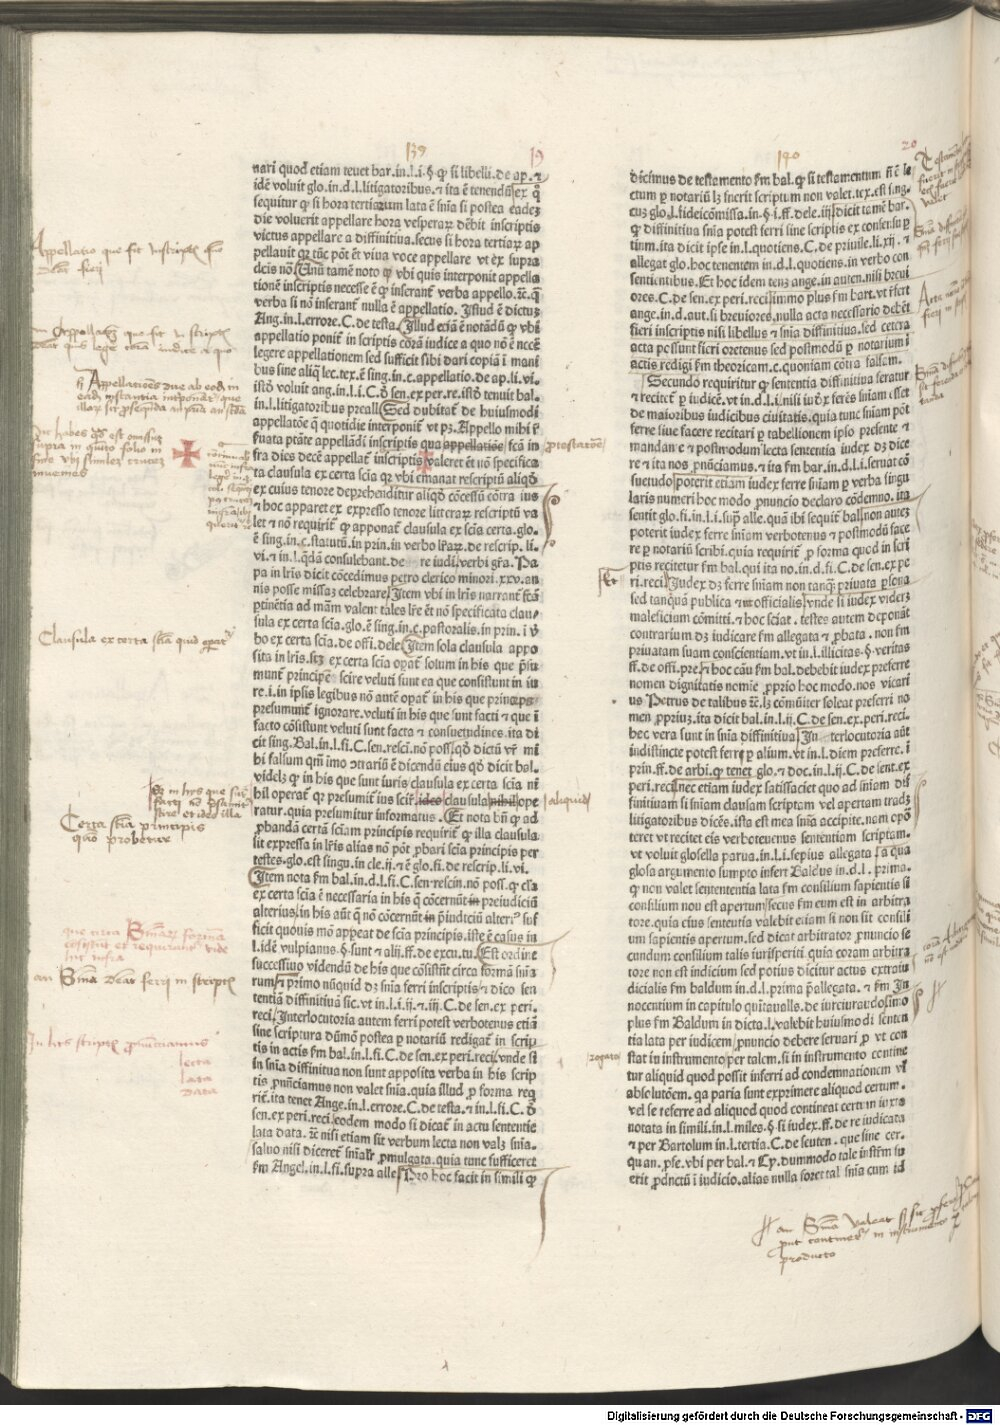 139
19
nari quod etiam tenet bar.in.l.i.§.ꝙ si libelli.de ap.⁊
idē voluit glo.in.d.l.litigatoribus.⁊ ita ē tenendū ex q̊
sequitur ꝙ si hora tertiarum lata ē sn̄ia si postea eadeȝ
die voluerit appellare hora vesperaꝝ dēbit inscriptis
victus appellare a diffinitiua.secus si hora tertiaꝝ ap
pellauit qꝛ tūc pōt ēt viua voce appellare vt ex supra
dcis nō Unū tamē noto ꝙ vbi quis interponit appella
tionē inscriptis necesse ē ꝙ inserant̄ verba appello.⁊c̄.q̄
verba si nō inserant̄ nulla ē appellatio. Istud ē dictuȝ
Ang.in.l.errore.C.de testa. Illud etiā ē notādū ꝙ vbi
appellatio ponit̄ in scriptis corā iudice a quo nō ē necē
legere appellationem sed sufficit sibi dari copiā i mani
bus sine aliq̄ lec.tex.ē sing.in.c.appellatio.de ap.li.vi.
istō voluit ang.in.l.i.C.ō sen.ex per.re.istō tenuit bal.
in.l.litigatoribus preall. Sed dubitat̄ de huiusmodi
appellatōe q̄ quotidie interponit̄ vt pȝ. Appello mihi r̄
fuata ptāte appellādi inscriptis qua appellatiōe fcā in
protestatōne
fra dies decē appellat̄ inscriptis valeret ēt nō specifica
ta clausula ex certa scia qꝛ vbi emanat rescriptū aliqō
ex cuius tenore deprehenditur aliqō cōcessū contra ius
⁊ hoc apparet ex expresso tenore litteraꝝ rescriptū va
let ⁊ nō requirit̄ ꝙ apponat̄ clausula ex scia certa.glo.
ē sing.in.c.statutū.in prin.in verbo lr̄aꝝ.de rescrip.li.
vi.⁊ in.l.q̄dā consulebant.de re iudi.verbi gr̄a. Pa
pa in lr̄is dicit cōcedimus petro clerico minori.xxv.an
nis posse missaȝ celebrare. Item vbi in lr̄is narrant̄ fcā
ptinētia ad mām valent tales lr̄e ēt nō specificata clau
sula ex certa scia.glo.ē sing.in.c.pastoralis.in prin.i v̄
bo ex certa scia.de offi.dele Item sola clausula appo
sita in lr̄is.scȝ ex certa scia opat̄ solum in his que p̄su
munt̄ principē scire veluti sunt ea que consistunt in iu
re.i.in ipsis legibus nō autē opat̄ in his que princeps
presumunt̄ ignorare.veluti in his que sunt facti ⁊ que ī
facto cōsistunt veluti sunt facta ⁊ consuetudines.ita di
cit sing.Bal.in.l.fi.C.sen.resci.nō poss.qō dictū vr̄ mi
bi falsum qm̄ imo ↄtrariū ē dicendū eius qō dicit bal.
videlȝ ꝙ in his que sunt iuris clausula ex certa scia ni
bil operat̄ qꝛ presumit̄ ius scir̄. ideo clausula nihil ope
aliquid
ratur.quia presumitur informatus. Et nota bn̄ ꝙ ad
ꝓbandā certā sciam principis requirit̄ ꝙ illa clausula
sit expressa in lr̄is alias nō pōt ꝓbari scia principis per
testes.glo.est singu.in cle.ij.⁊ ē glo.fi.de rescrip.li.vi.
Item nota fm bal.in.d.l.fi C.sen.rescin.nō poss.ꝙ cla
ex certa scia ē necessaria in his q̄ cōcernūt in preiudiciū
alterius in his aūt q̄ nō cōcernūt in p̄iudiciū alteriꝰ suf
ficit quouis mō appeat de scia principis.iste ē casus in
l.idē vulpianus.§.sunt ⁊ alij.ff.de excu.tu. Est ordine
successiuo videndū de his que cōsistūt circa formā sn̄ia
rum ⁊ primo nūquid dȝ sn̄ia ferri inscriptis ⁊ dico sen
tentiā diffinitiuā sic.vt in.l.i.ij.⁊ iij.C.de sen.ex peri.
reci. Interlocutoria autem ferri potest verbotenus etiā
sine scriptura dūmō postea p notariū redigat̄ in scrip
tis in actis fm bal.in.l.fi.C.de sen.ex peri.reci.vnde si
in sn̄ia diffinitua non sunt apposita verba in his scrip
tis ꝓnūciamus non valet sn̄ia.quia illud ꝓ forma req̄
rit̄.ita tenet Ange.in.l.errore.C.de testa.⁊ in.l.fi.C.ō
sen.ex peri.reci.eodem modo si dicat̄ in actu sententie
lata data.⁊c̄ nisi etiam sit verbum lecta non valȝ sn̄ia.
saluo nisi diceret sn̄ialr̄ ꝓmulgata.quia tunc sufficeret
fm Angel.in.l.fi.supra alle. Pro hoc facit in simili ꝙ
140
20
dicimus de testamento fm bal.ꝙ si testamentum nō ē le
ctum p notariū lȝ fuerit scriptum non valet.tex.est sing.
cuȝ glo.l.fideicōmissa.in.§.i.ff.dele.iij. dicit tamē bar.
ꝙ diffinitiua sn̄ia potest ferri sine scriptis ex consen.su p
tium.ita dicit ipse in.l.quotiens.C.de priuile.li.xij.⁊
allegat glo.hoc tenentem in.d.l.quotiens.in verbo con
sentientibus. Et hoc idem tenȝ ange.in auten.nisi breui
ores.C.de sen.ex peri.reci. immo plus fm bart.vt r̄fert
ange.in.d.aut.si breuiores.nulla acta necessario debēt
fieri inscriptis nisi libellus ⁊ sn̄ia diffinitiua.sed cetera
acta possunt fieri oretenus sed postmodū p notarium i
actis redigi fm theoricam.e.quoniam cōtra falsam.
Secundo requiritur ꝙ sententia diffinitiua feratur
⁊ recitet̄ p iudicē.vt in.d.l.i.nisi iudȝ ferēs sn̄iam esset
de maioribus iudicibus ciuitatis.quia tunc sn̄iam pōt
ferre siue facere recitari p tabellionem ipso presente ⁊
mandante ⁊ postmodum lecta sententia iudex dȝ dice
re ⁊ ita nos ꝓnūciamus.⁊ ita fm bar.in.d.l.i.seruat cō
suetudo poterit etiam iudex ferre sn̄iam p verba singu
laris numeri hoc modo ꝓnuncio declaro cōdemno.ita
sentit glo.fi.in.l.i.supͣ alle.quā ibi sequit̄ bal. non auteȝ
poterit iudex ferre sn̄iam verbotenus ⁊ postmodū face
re p notariū scribi.quia requirit̄ ꝓ forma quod in scri
ptis recitetur fm bal.qui ita no.in.d.fi C.de sen.ex pe
ri.reci. Iudex dȝ ferre sn̄iam non tanqꝫ priuata psona
sed tanquā publica ⁊ officialis vnde si iudex videȝ
maleficium cōmitti.⁊ hoc sciat. testes autem deponāt
contrarium dȝ iudicare fm allegata ⁊ ꝓbata. non fm
priuatam suam conscientiam.vt in.l.illicitas.§.veritas
ff.de offi.pre. hoc cāu fm bal.debebit iudex preferre
nomen dignitatis nomīe ꝓprio hoc modo.nos vicari
us Petrus de talibus ⁊c̄.lȝ cōmūiter soleat preferri no
men ꝓpriuȝ.ita dicit bal.in.l.ij.C.de sen.ex.peri.reci.
hec vera sunt in sn̄ia diffinitiua In interlocutoria aūt
indistincte potest ferri p alium.vt in.l.diem preferre.ī
prin.ff.de arbi.ꝙ tenet glo.⁊ doc.in.l.ij.C.de sent.ex
peri.reci nec etiam iudex satisfaciet quo ad sn̄iam dif
finitiuam si sn̄iam clausam scriptam vel apertam tradȝ
litigatoribus dicēs.ista est mea sn̄ia accipite.nam opō
teret vt recitet eis verbotenus sententiam scriptam.
vt voluit glosella parua.in.l.i.sepius allegata a qua
glosa argumento sumpto infert Baldus in.d.l.prima.
ꝙ non valet sentententia lata fm consilium sapientis si
consilium non est apertum secus fm eum est in arbitra
tore.quia eius sententia valebit etiam si non sit consili
um sapientis apertum.sed dicat arbitrator ꝓnuncio se
cundum consilium talis iurisperiti quia coram arbitra
tore non est iudicium sed potius dicitur actus extraiu
dicialis fm baldum in.d.l.prima p̄allegata.⁊ fm In
nocentium in capitulo quītauallis.de iureiurādo immo
plus fm Baldum in dicta.l.valebit huiusmodi senten
tia lata per iudicem ꝓnuncio debere seruari ꝓ vt con
rogato
stat in instrumento per talem.si in instrumento contine
tur aliquid quod possit inferri ad condemnationem vl̄
absolutōem.qa paria sunt exprimere aliquod certum.
vel se referre ad aliquod quod contineat certum iuxta
notata in simili.in.l.miles.§.si iudex.ff.de re iudicata
⁊ per Bartolum in.l.tertia.C.de senten.que sine cer.
quan.ꝓse.vbi per bal.⁊ Cy. dummodo tale instrm su
erit ꝓductū i iudicio.alias nulla foret tal sn̄ia cum id
Clausula ex certa scia quid operat̄
Certa scia principis
quō probetur
an Sn̄ia debeat ferri in scriptis
In his scriptis pronunciamus
lecta
lata
data
an Sn̄ia valeat si sic profert
put continet̄ in instrumento
producto
Digitalisierung gefördert durch die Deutsche Forschungsgemeinschaft - DFG